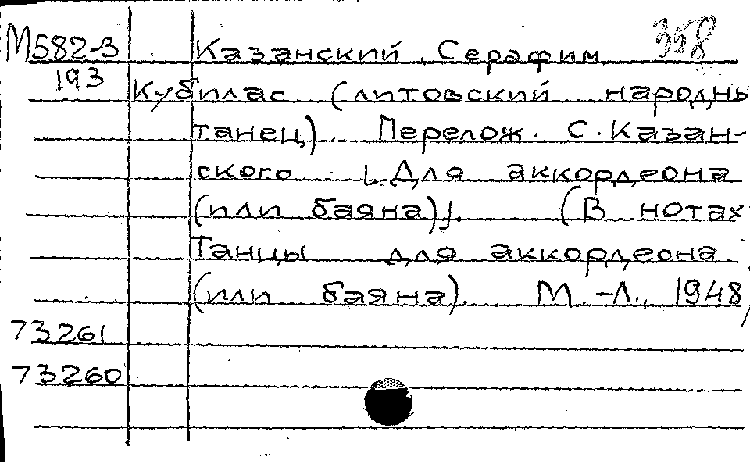 М582-3 Казанский, Серафим 358
193 Кубилас (литовский народны
танец). Перелож. С. Казан-
ского [Для аккордеона
(или баяна)]. (В нотах
Танцы для аккордеона
(или баяна). М.-Л., 1948,
73261
73260